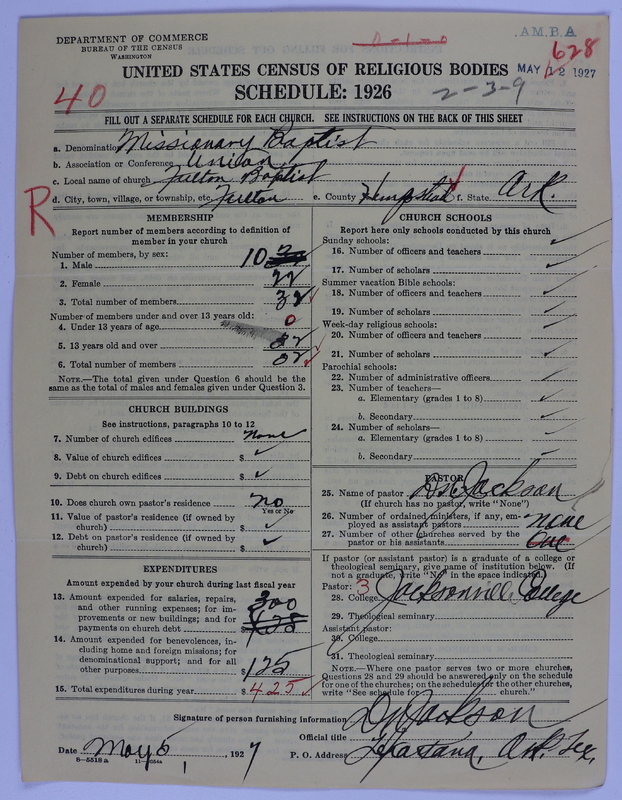 DEPARTMENT OF COMMERCE
BUREAU OF THE CENSUS
WASHINGTON
0-1-0
A.M.B.A.
628
MAY 12 1927
UNITED STATES CENSUS OF RELIGIOUS BODIES
SCHEDULE: 1926
40
2-3-9
FILL OUT A SEPARATE SCHEDULE FOR EACH CHURCH. SEE INSTRUCTIONS ON THE BACK OF THIS SHEET
a. Denomination Missionary Baptist
b. Association or Conference Union
c. Local name of church Fulton Baptist
d. City, town, village, or township, etc. Fulton e. County Hempstead f. State Ark.
R
MEMBERSHIP
Report number of members according to definition of
member in your church
Number of members, by sex:
1. Male 10
2. Female 22
3. Total number of members 32
Number of members under and over 13 years old:
4. Under 13 years of age 0
5. 13 years old and over 32
6. Total number of members 32
NOTE.—The total given under Question 6 should be the
same as the total of males and females given under Question 3.
CHURCH BUILDINGS
See instructions, paragraphs 10 to 12
7. Number of church edifices none
8. Value of church edifices $
9. Debt on church edifices $
10. Does church own pastor's residence No
Yes or No
11. Value of pastor's residence (if owned by
church) $
12. Debt on pastor's residence (if owned by
church) $
EXPENDITURES
Amount expended by your church during last fiscal year
13. Amount expended for salaries, repairs,
and other running expenses; for im-
provements or new buildings; and for
payments on church debt $ 300
14. Amount expended for benevolences, in-
cluding home and foreign missions; for
denominational support; and for all
other purposes $ 125
15. Total expenditures during year $ 425
CHURCH SCHOOLS
Report here only schools conducted by this church
Sunday schools:
16. Number of officers and teachers
17. Number of scholars
Summer vacation Bible schools:
18. Number of officers and teachers
19. Number of scholars
Week-day religious schools:
20. Number of officers and teachers
21. Number of scholars
Parochial schools:
22. Number of administrative officers
23. Number of teachers—
a. Elementary (grades 1 to 8)
b. Secondary
24. Number of scholars—
a. Elementary (grades 1 to 8)
b. Secondary
PASTOR
25. Name of pastor D N Jackson
(If church has no pastor, write "None")
26. Number of ordained ministers, if any, em-
ployed as assistant pastors none
27. Number of other churches served by the
pastor or his assistants One
If pastor (or assistant pastor) is a graduate of a college or
theological seminary, give name of institution below. (If
not a graduate, write "No" in the space indicated.)
Pastor: 3
28. College Jacksonville College
29. Theological seminary
Assistant pastor:
30. College
31. Theological seminary
NOTE.—Where one pastor serves two or more churches,
Questions 28 and 29 should be answered only on the schedule
for one of the churches; on the schedules for the other churches,
write "See schedule for church."
Signature of person furnishing information D N Jackson
Official title
Date May 5, 1927
P. O. Address Texarkana, Ark. Tex.
8—5518 a